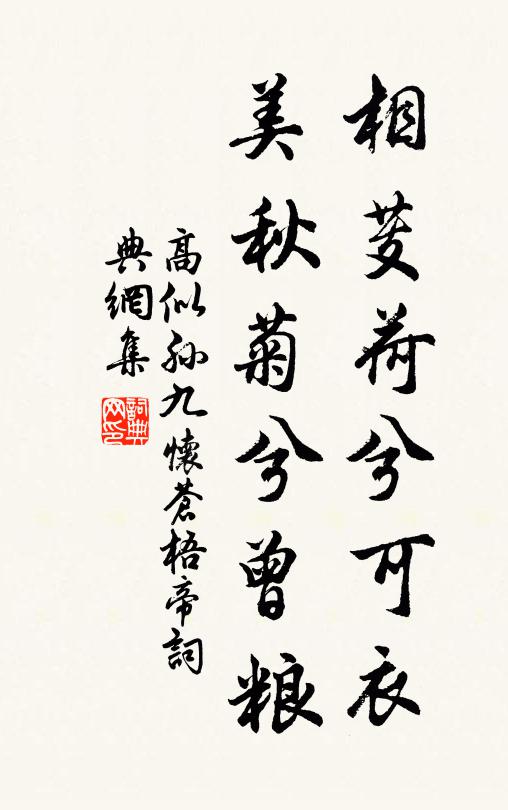 相芰荷兮可衣
美秋菊兮曾粮
高似孙九懷蒼梧帝詞
典網集
詞典
网印